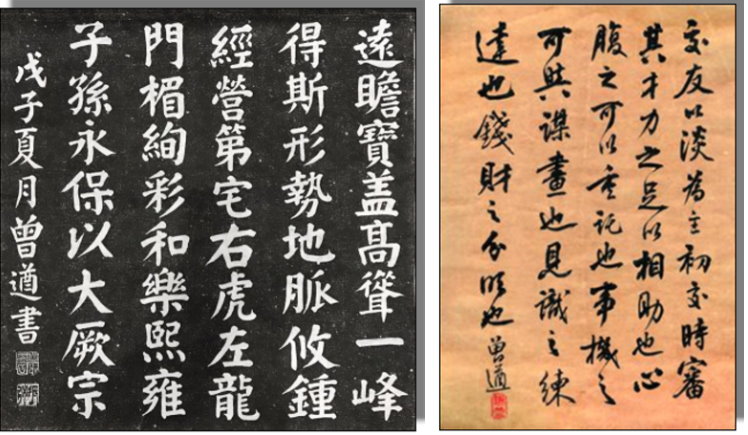 遠瞻寶盖高聳一峰
得斯形勢地脈攸鍾
經營第宅右虎左龍
門楣絢彩和樂熙雍
子孫永保以大厥宗
戊子夏月曾遒書
交友以淡為主初交時審
其才力之足以相助也心
腹之可以重託也事機之
可與謀畫也見識之練
達也錢財之分明也曾遒